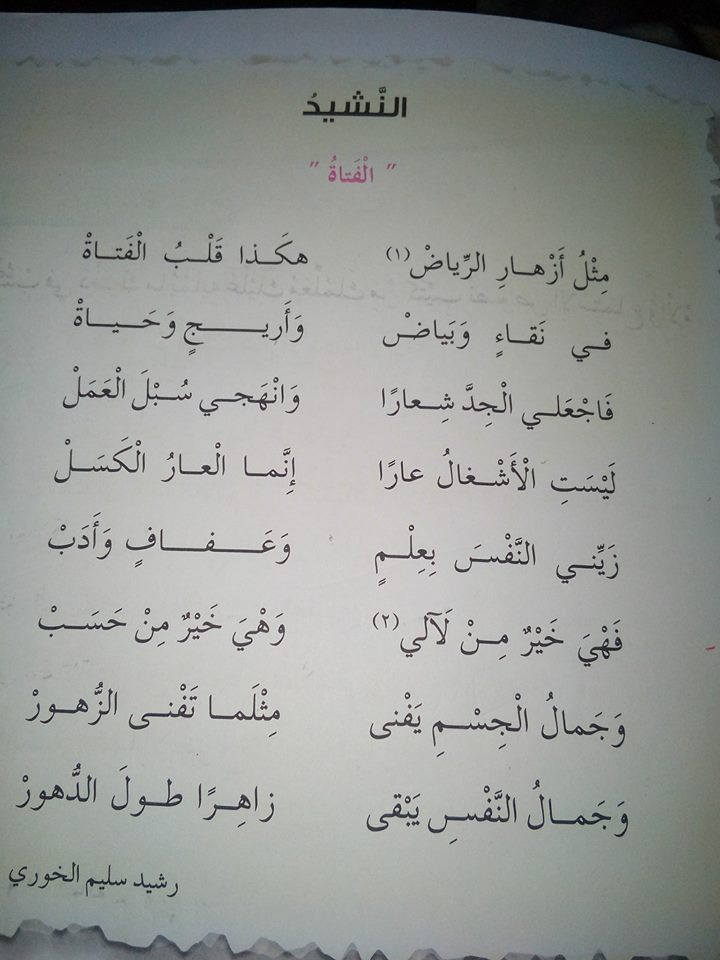 النَّشيدُ
" الْفَتاةُ "
مِثْلُ أَزْهارِ الرِّياضْ(١) هكَذا قَلْبُ الْفَتاةْ
في نَقاءٍ وَبَياضْ وَأَريجٍ وَحَياةْ
فَاجْعَلي الْجِدَّ شِعارًا وَانْهَجي سُبْلَ الْعَمَلْ
لَيْسَتِ الْأَشْغالُ عارًا إِنَّما الْعارُ الْكَسَلْ
زَيِّني النَّفْسَ بِعِلْمٍ وَعَفافٍ وَأَدَبْ
فَهْيَ خَيْرٌ مِنْ لَآلي(٢) وَهْيَ خَيْرٌ مِنْ حَسَبْ
وَجَمالُ الْجِسْمِ يَفْنى مِثْلَما تَفْنى الزُّهورْ
وَجَمالُ النَّفْسِ يَبْقى زاهِرًا طولَ الدُّهورْ
رشيد سليم الخوري